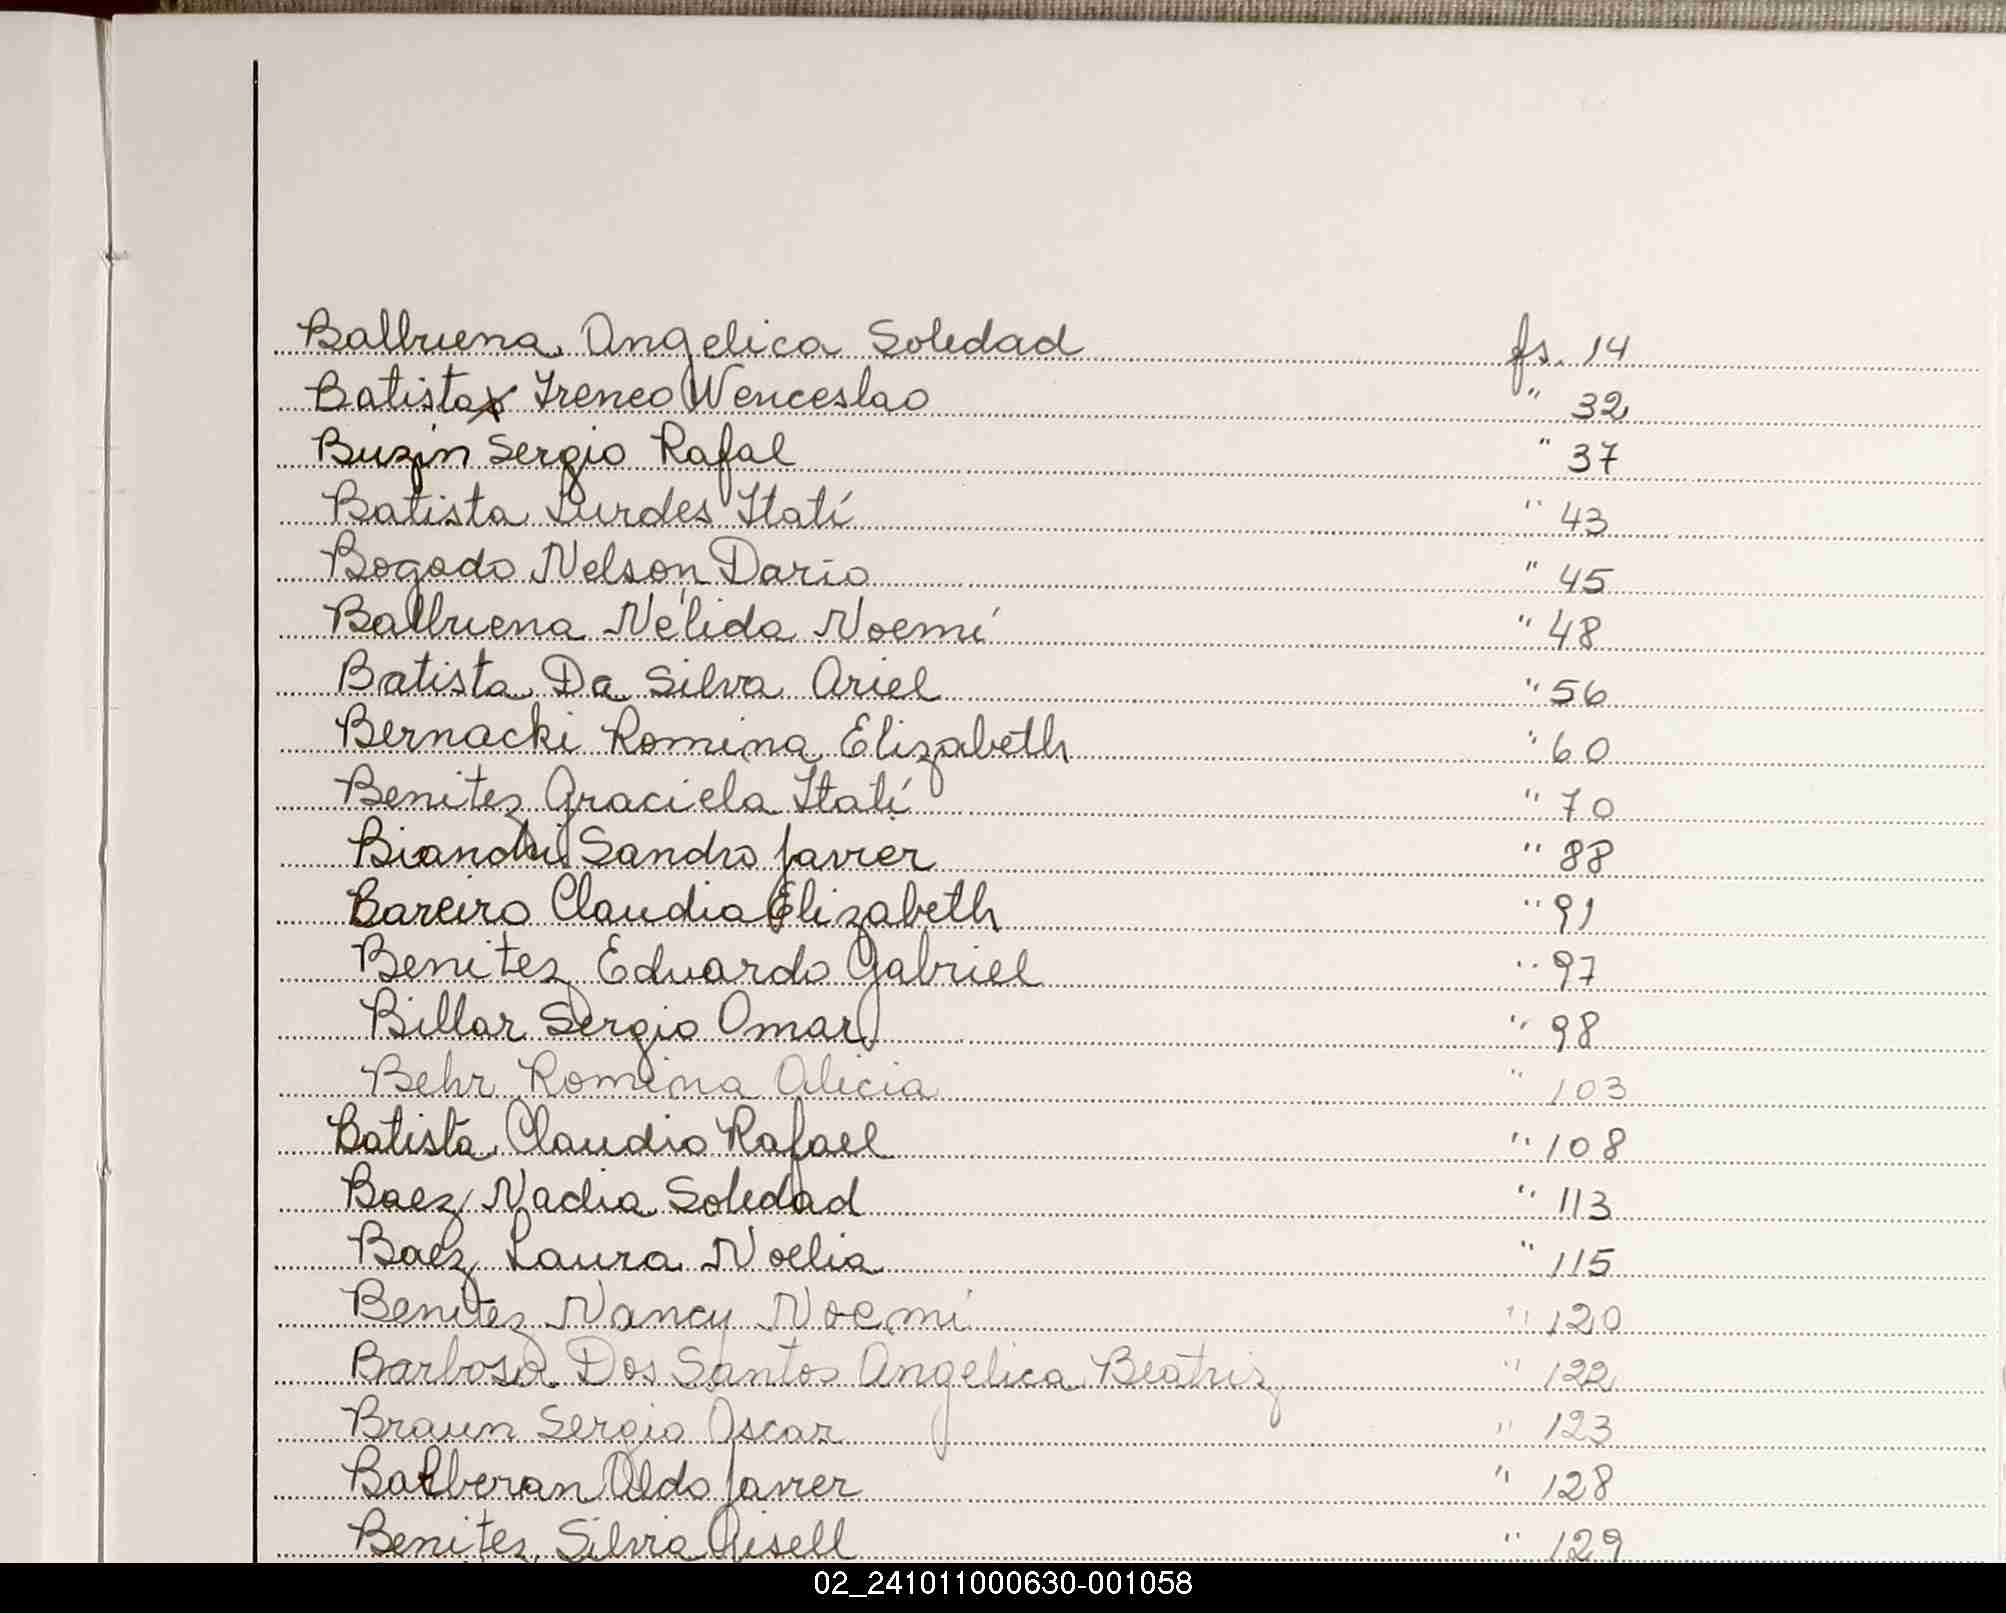 Balbuena Angelica Soledad fs. 14
Batista Ireneo Wenceslao " 32
Buzin Sergio Rafal " 37
Batista Lurdes Itatí " 43
Bogado Nelson Dario " 45
Balbuena Nélida Noemí " 48
Batista Da Silva Ariel " 56
Bernacki Romina Elizabeth " 60
Benitez Graciela Itatí " 70
Bianchi Sandro Javier " 88
Bareiro Claudia Elizabeth " 91
Benitez Eduardo Gabriel " 97
Billar Sergio Omar " 98
Behr Romina Alicia " 103
Batista Claudio Rafael " 108
Baez Nadia Soledad " 113
Baez Laura Noelia " 115
Benitez Nancy Noemi " 120
Barbosa Dos Santos Angelica Beatriz " 122
Braun Sergio Oscar " 123
Aldo Javier " 128
Benitez Silvia Gisell " 129
02_241011000630-001058